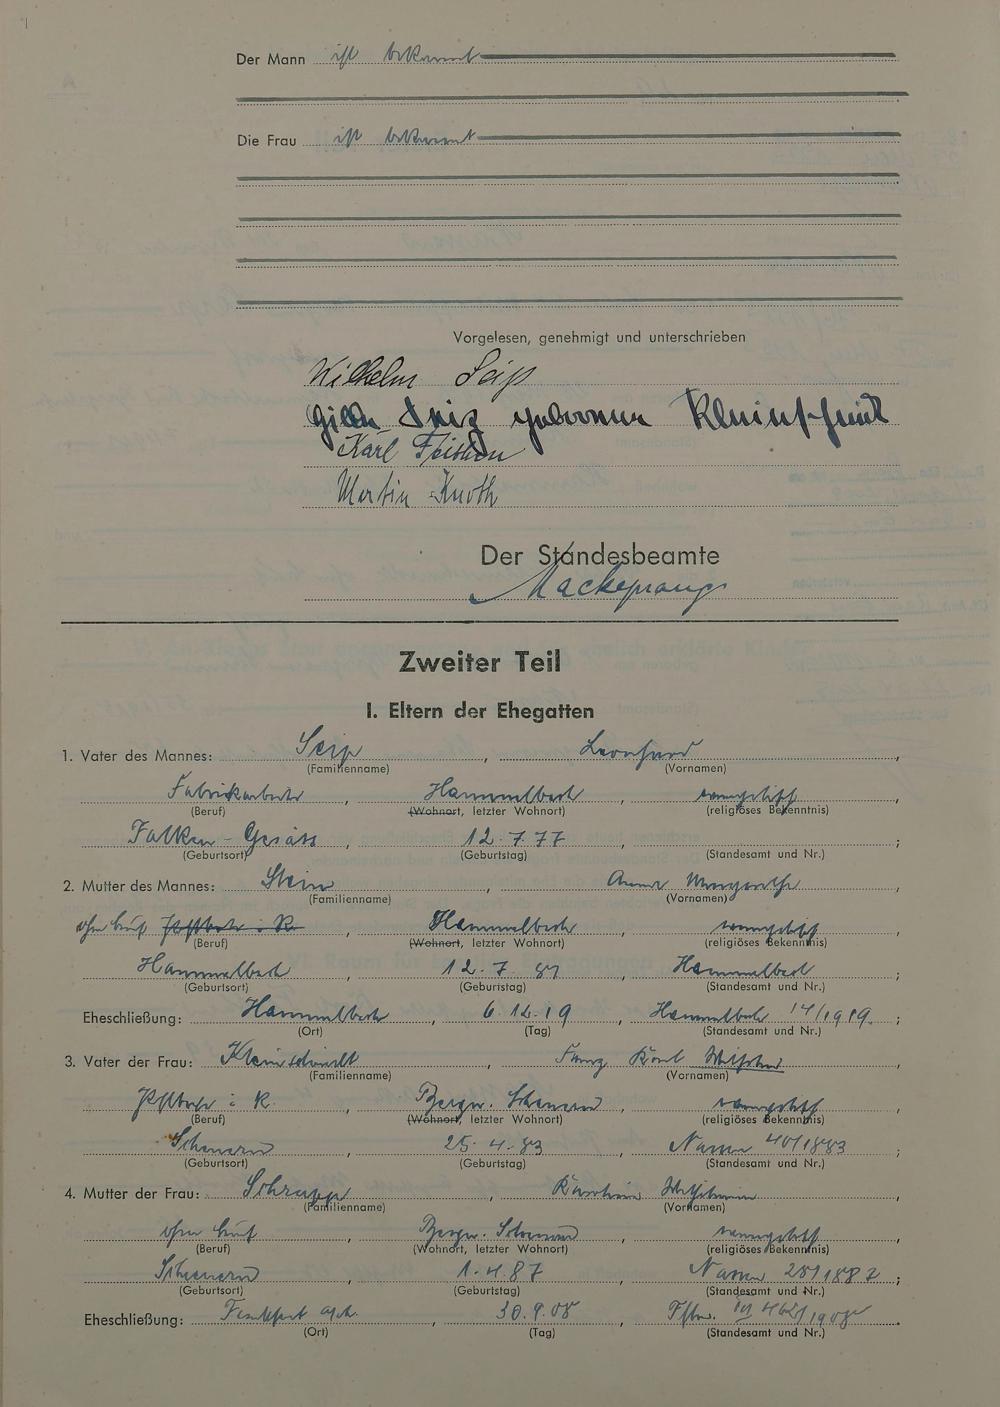 Der Mann ist bekannt
Die Frau ist bekannt
Vorgelesen, genehmigt und unterschrieben
Wilhelm Seip
Seip geborene Kleinschmidt
Karl
Martin Knoth
Der Standesbeamte
Mackeprang
Zweiter Teil
I. Eltern der Ehegatten
1. Vater des Mannes: Seip, Leonhard,
(Familienname) (Vornamen)
Fabrikarbeiter, Hammelbach, evangelisch
(Beruf) (Wohnort, letzter Wohnort) (religiöses Bekenntnis)
Falken-Gesäss, 12.7.77,;
(Geburtsort) (Geburtstag) (Standesamt und Nr.)
2. Mutter des Mannes: Stein, Anna Margarethe,
(Familienname) (Vornamen)
ohne Beruf, Hammelbach, evangelisch
(Beruf) (Wohnort, letzter Wohnort) (religiöses Bekenntnis)
Hammelbach, 12.7.81, Hammelbach;
(Geburtsort) (Geburtstag) (Standesamt und Nr.)
Eheschließung: Hammelbach, 6.12.19, Hammelbach 14/1919.;
(Ort) (Tag) (Standesamt und Nr.)
3. Vater der Frau: Kleinschmidt, Karl Wilhelm,
(Familienname) (Vornamen)
i. R., Bergn. Scheuern, evangelisch
(Beruf) (Wohnort, letzter Wohnort) (religiöses Bekenntnis)
Scheuern, 25.4.83, Nassau 40/1883;
(Geburtsort) (Geburtstag) (Standesamt und Nr.)
4. Mutter der Frau: Schrupp, Karoline Wilhelmine,
(Familienname) (Vornamen)
ohne Beruf, Bergn. Scheuern, evangelisch
(Beruf) (Wohnort, letzter Wohnort) (religiöses Bekenntnis)
Scheuern, 1.4.87, Nassau 28/1887;
(Geburtsort) (Geburtstag) (Standesamt und Nr.)
Eheschließung: Frankfurt a/M., 30.9.08,
(Ort) (Tag) (Standesamt und Nr.)